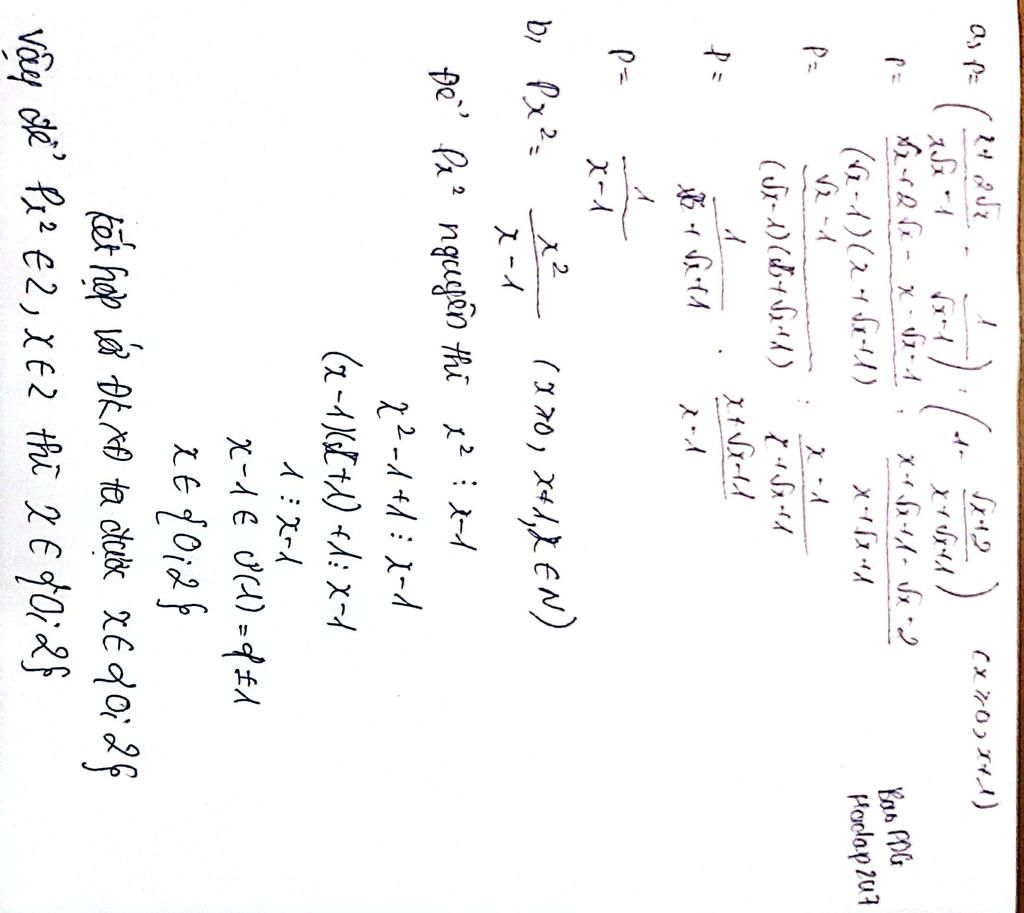 a, P = (x+2√x / x√x-1 - 1 / √x-1) : (1 - √x+2 / x+√x+1) (x≥0, x≠1)
P = x+2√x - x-√x-1 / (√x-1)(x+√x+1) : x+√x+1-√x-2 / x+√x+1
P = √x-1 / (√x-1)(x+√x+1) : x-1 / x+√x+1
P = 1 / x+√x+1 . x+√x+1 / x-1
P = 1 / x-1
b, Px² = x² / x-1 (x≥0, x≠1, x∈N)
Để Px² nguyên thì x² ⋮ x-1
x²-1+1 ⋮ x-1
(x-1)(x+1)+1 ⋮ x-1
1 ⋮ x-1
x-1 ∈ Ư(1) = {±1
x ∈ {0;2}
Kết hợp với ĐKXĐ ta được x ∈ {0;2}
Vậy để Px² ∈ Z, x ∈ Z thì x ∈ {0;2}
Bao PDG
Hoidap247